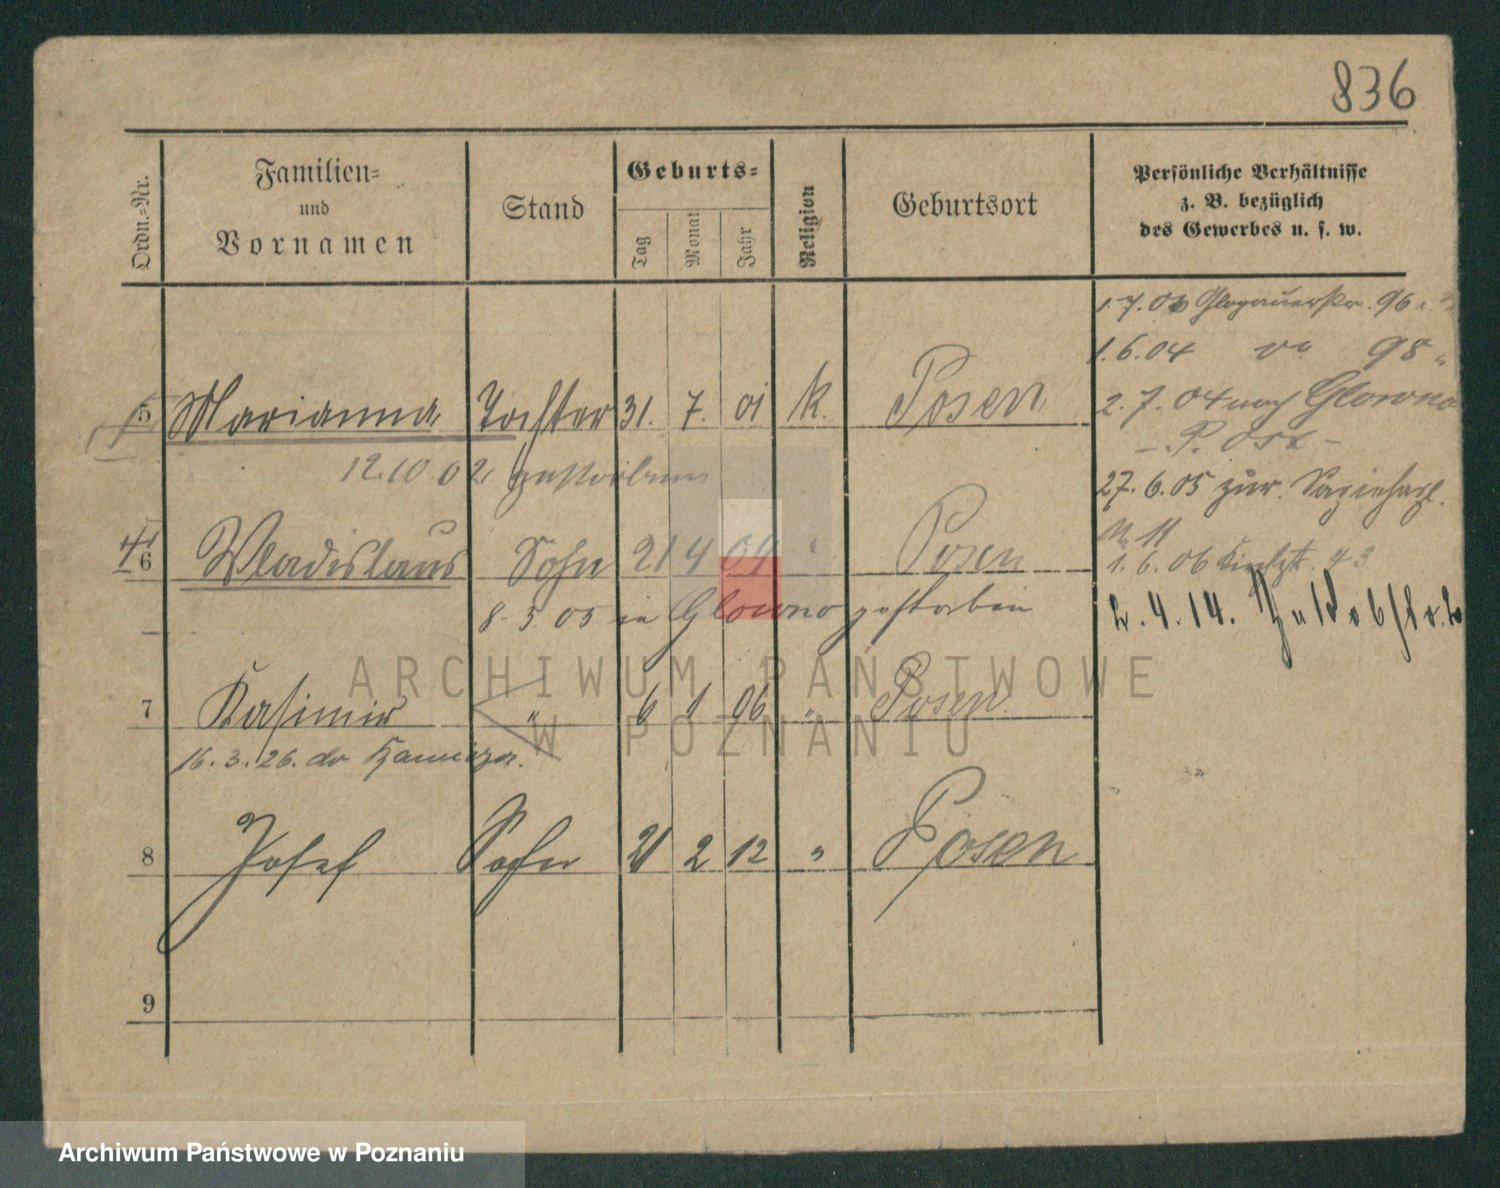 836
Ordn.-Nr.
Familien-
und
Vornamen
Stand
Geburts-
Tag
Monat
Jahr
Religion
Geburtsort
Persönliche Verhältnisse
z. B. bezüglich
des Gewerbes u. s. w.
Glogauerstr. 96
1.6.04 98
5 Marianna Tochter 31. 7. 01 k. Posen
2.7.04 nach Glowno
P. Ost
12.10.02 gestorben
27.6.05 zur.
6 Wladislaus Sohn 21 4 04 " Posen
1.6.06 43
8.3.05 in Glowno gestorben
2.4.14.
7 Kasimir " 6 1 06 " Posen
16.3.26. do
8 Josef Sohn 21 2 12 " Posen
9
ARCHIWUM PAŃSTWOWE
W POZNANIU
Archiwum Państwowe w Poznaniu